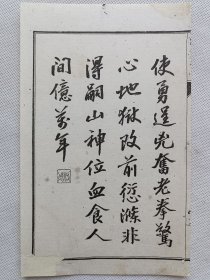 使勇逞兇奮老拳驚
心地獄改前愆滌非
得嗣山神位血食人
間億萬年